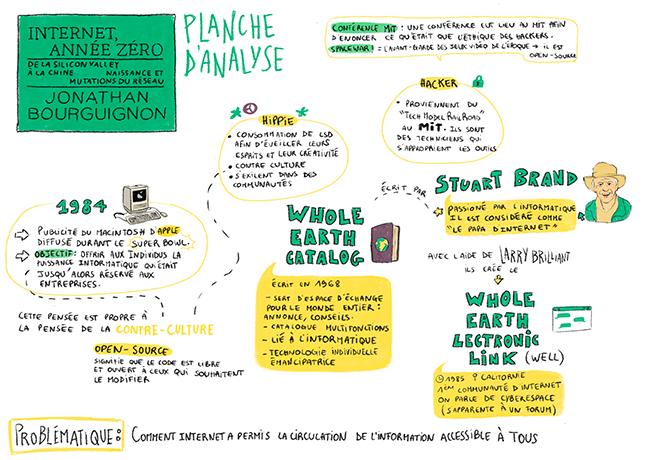 INTERNET,
ANNÉE ZÉRO
DE LA SILICON VALLEY
À LA CHINE NAISSANCE ET
MUTATIONS DU RÉSEAU
JONATHAN
BOURGUIGNON
PLANCHE
D'ANALYSE
CONFÉRENCE MIT : UNE CONFÉRENCE EUT LIEU AU MIT AFIN
D'ENONCER CE QU'ÉTAIT QUE L'ÉTHIQUE DES HACKERS.
SPACEWAR! = L'AVANT-GARDE DES JEUX VIDÉO DE L'ÉPOQUE → IL EST
OPEN-SOURCE
HIPPIE
• CONSOMMATION DE LSD
AFIN D'ÉVEILLER LEURS
ESPRITS ET LEUR CRÉATIVITÉ
• CONTRE CULTURE
• S'EXILENT DANS DES
COMMUNAUTÉS
HACKER
• PROVIENNENT DU
"TECH MODEL RAILROAD"
AU MIT. ILS SONT
DES TECHNICIENS QUI
S'APPROPRIENT LES OUTILS
1984
⇒ PUBLICITÉ DU MACINTOSH D'APPLE
DIFFUSÉ DURANT LE SUPER BOWL.
⇒ OBJECTIF: OFFRIR AUX INDIVIDUS LA
PUISSANCE INFORMATIQUE QU'ÉTAIT
JUSQU'ALORS RÉSERVÉ AUX
ENTREPRISES.
CETTE PENSÉE EST PROPRE À
LA PENSÉE DE LA CONTRE-CULTURE
OPEN-SOURCE
SIGNIFIE QUE LE CODE EST LIBRE
ET OUVERT À CEUX QUI SOUHAITENT
LE MODIFIER
WHOLE
EARTH
CATALOG
ÉCRIT EN 1968
- SERT D'ESPACE D'ÉCHANGE
POUR LE MONDE ENTIER:
ANNONCE, CONSEILS.
- CATALOGUE MULTIFONCTIONS
- LIÉ À L'INFORMATIQUE
- TECHNOLOGIE INDIVIDUELLE
ÉMANCIPATRICE
ÉCRIT PAR
STUART BRAND
PASSIONÉ PAR L'INFORMATIQUE
IL EST CONSIDÉRÉ COMME
"LE PAPA D'INTERNET"
AVEC L'AIDE DE LARRY BRILLIANT
ILS CRÉE LE
WHOLE
EARTH
LECTRONIC
LINK (WELL)
1985 CALIFORNIE
1ÈRE COMMUNAUTÉ D'INTERNET
ON PARLE DE CYBERESPACE
(S'APPARENTE À UN FORUM)
PROBLÉMATIQUE: COMMENT INTERNET A PERMIS LA CIRCULATION DE L'INFORMATION ACCESSIBLE À TOUS